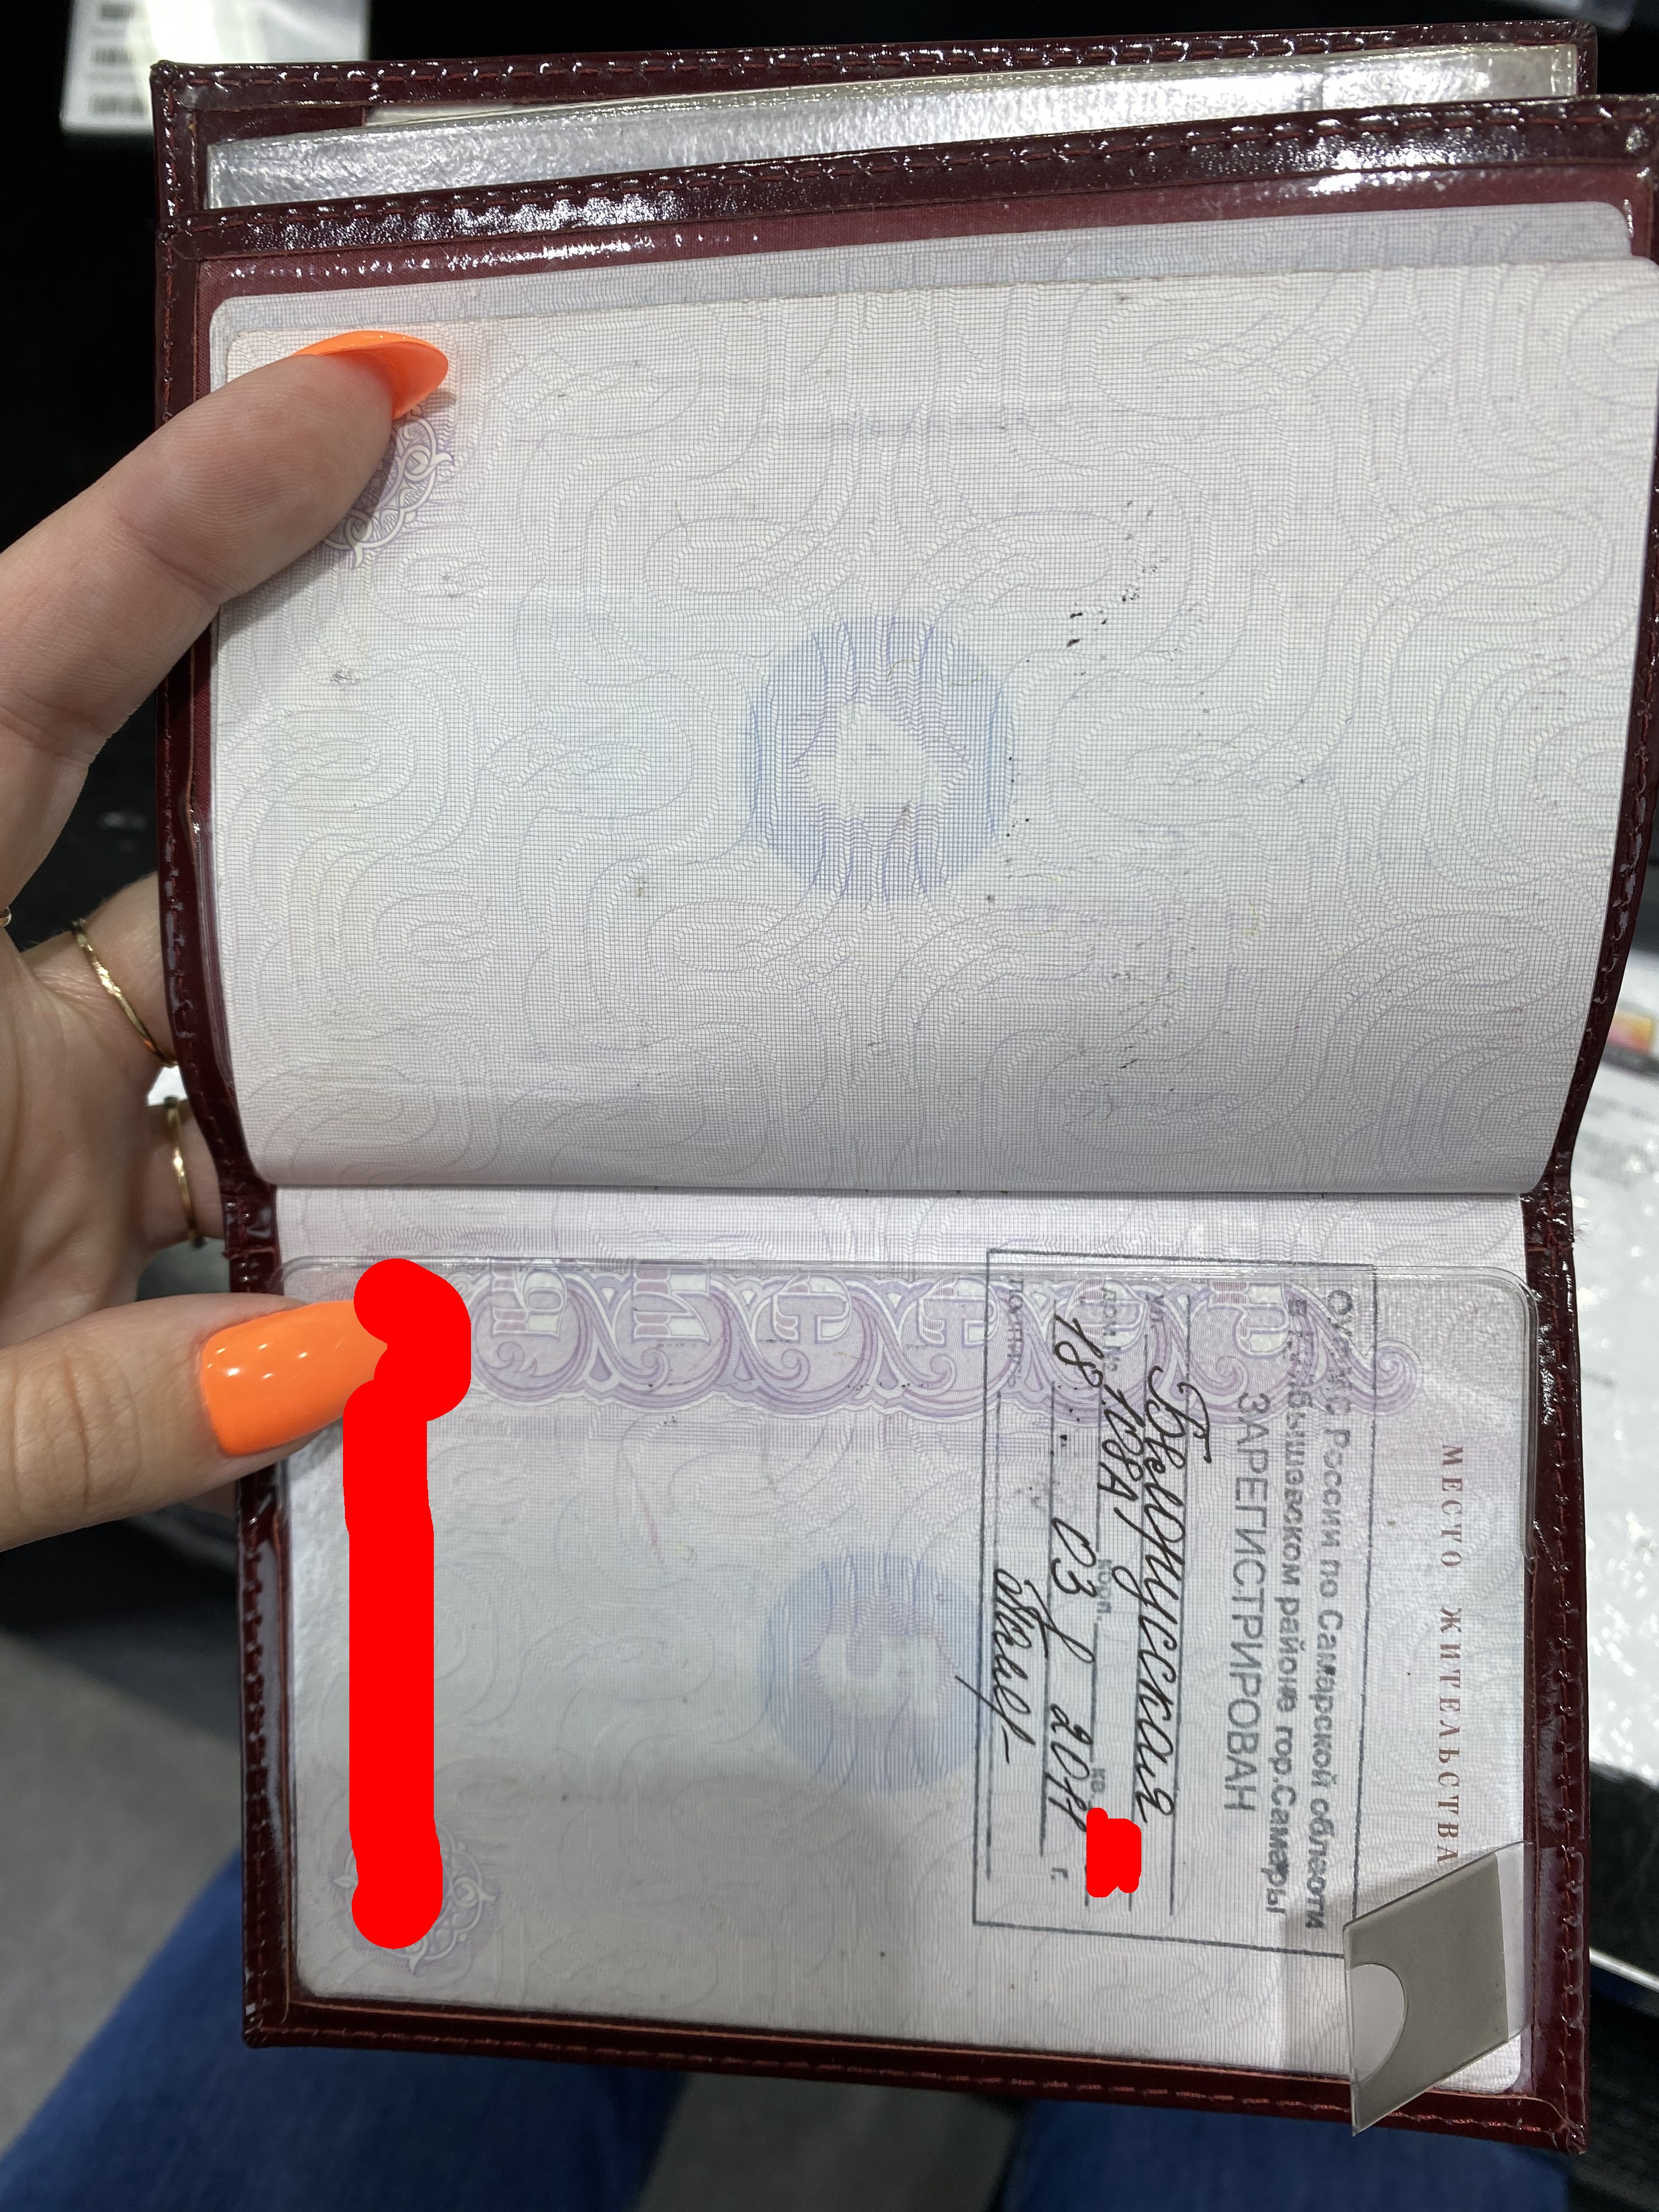 МЕСТО ЖИТЕЛЬСТВА
России по Самарской области
в Куйбышевском районе гор.Самары
ЗАРЕГИСТРИРОВАН
ул. Белорусская
дом № корп. кв.
03 2011 г.